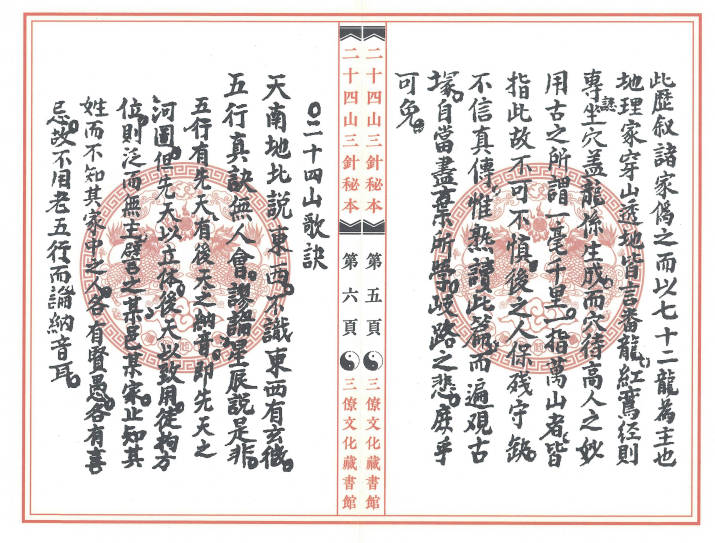 此歷叙諸家僞之而以七十二龍為主也
地理家穿山透地皆言番龍紅鸞經則
專坐穴蓋龍係生成而穴待高人之妙
用古之所謂一毫千里一指萬山者皆
指此故不可不慎後之人保殘守缺
不信真傳惟熟讀此篇而遍覌古
塚自當盡棄所學岐路之悲庶乎
可免
二十四山三針秘本
第五頁
三僚文化藏書館
二十四山三針秘本
第六頁
三僚文化藏書館
二十四山歌訣
天南地北說東西不識東西有玄微
五行真訣無人會謬論星辰說是非
五行有先天有後天之納音即先天之
河圖但先天以立体後天以致用徒拘方
位則泛而無主譬之某邑某家止知其
姓而不知其家中之人各有賢愚各有喜
忌故不用老五行而論納音耳